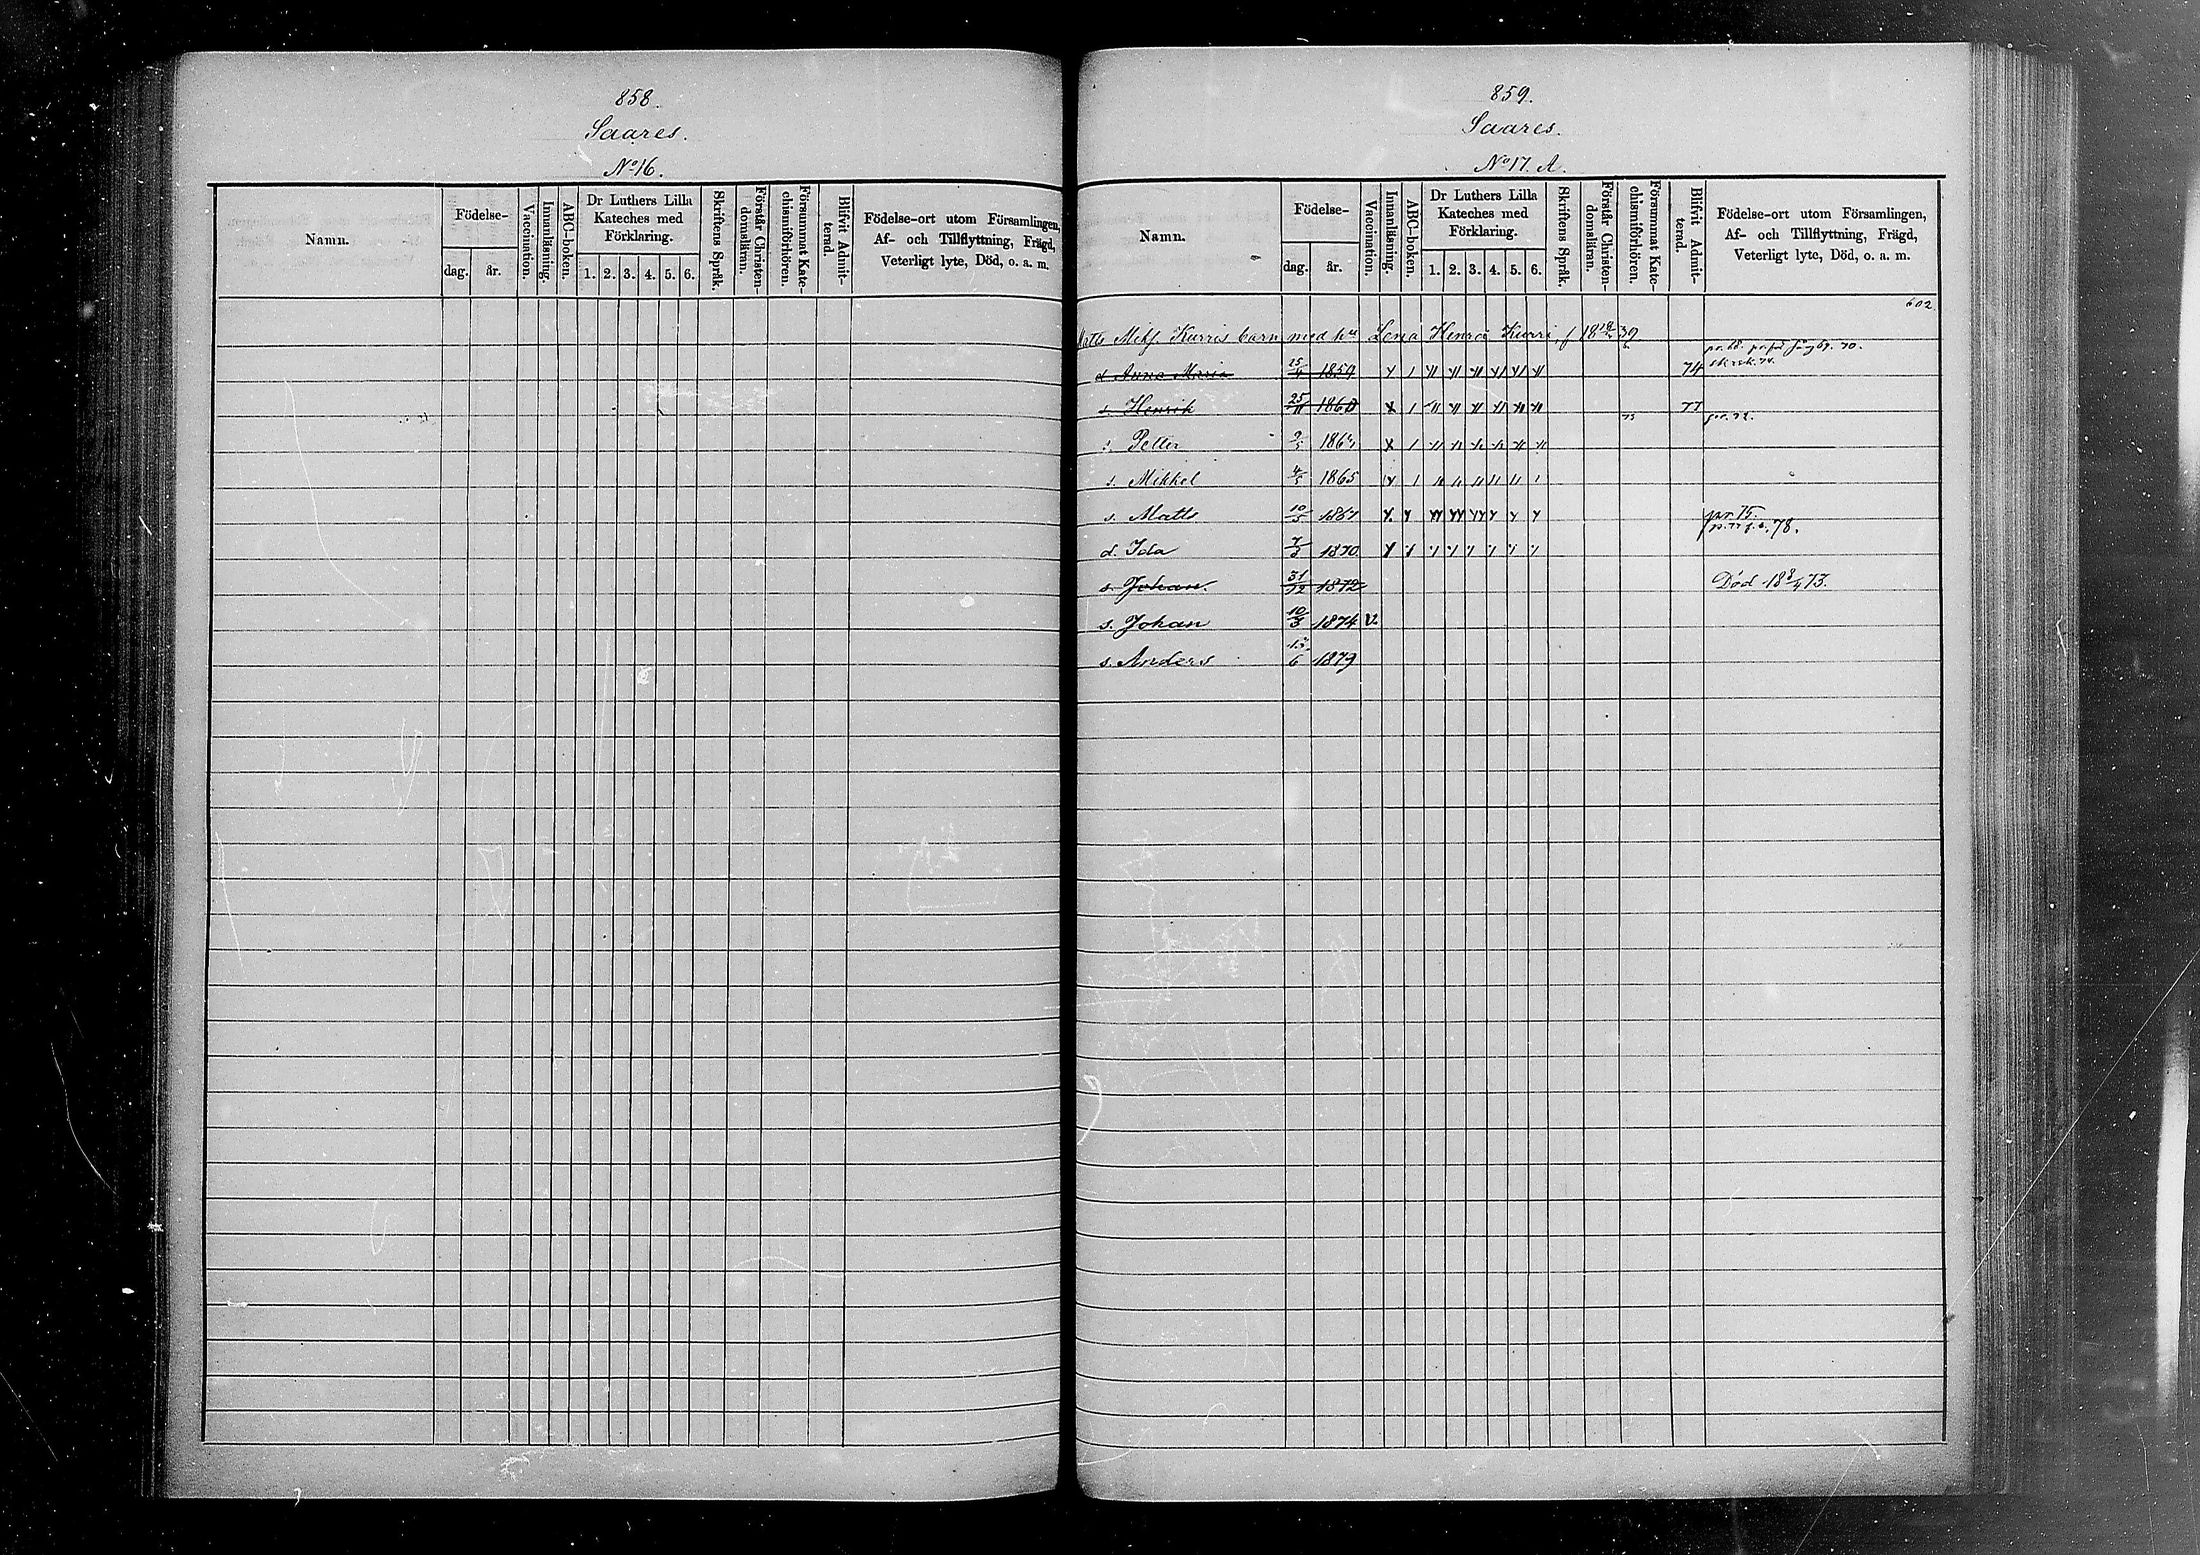 858.
Saares.
No 16.
Namn.
Födelse-
dag.
år.
Vaccination.
Innanläsning.
ABC-boken.
Dr Luthers Lilla
Kateches med
Förklaring.
1. 2. 3. 4. 5. 6.
Skriftens Språk.
Förstår Christen-
domsläran.
Försummat Kate-
chismiförhören.
Blifvit Admit-
terad.
Födelse-ort utom Församlingen,
Af- och Tillflyttning, Frägd,
Veterligt lyte, Död, o. a. m.
859.
Saares.
No 17. A.
Namn.
Födelse-
dag.
år.
Vaccination.
Innanläsning.
ABC-boken.
Dr Luthers Lilla
Kateches med
Förklaring.
1. 2. 3. 4. 5. 6.
Skriftens Språk.
Förstår Christen-
domsläran.
Försummat Kate-
chismiförhören.
Blifvit Admit-
terad.
Födelse-ort utom Församlingen,
Af- och Tillflyttning, Frägd,
Veterligt lyte, Död, o. a. m.
602.
Matts Kurris barn med Lena Kurri, f
d. Anna Maria 25/4 1859 74
s. Henrik 25/11 1860 77 pr. 72.
s. Petter
s. Mikkel 4/5 1865
s. Matts 10/5 1867 pr. 75.
78.
d. Ida 7/3 1870
s. Johan. 31/12 1872 Död 18 3/4 73.
s. Johan 10/3 1874 v.
s. Anders 1879